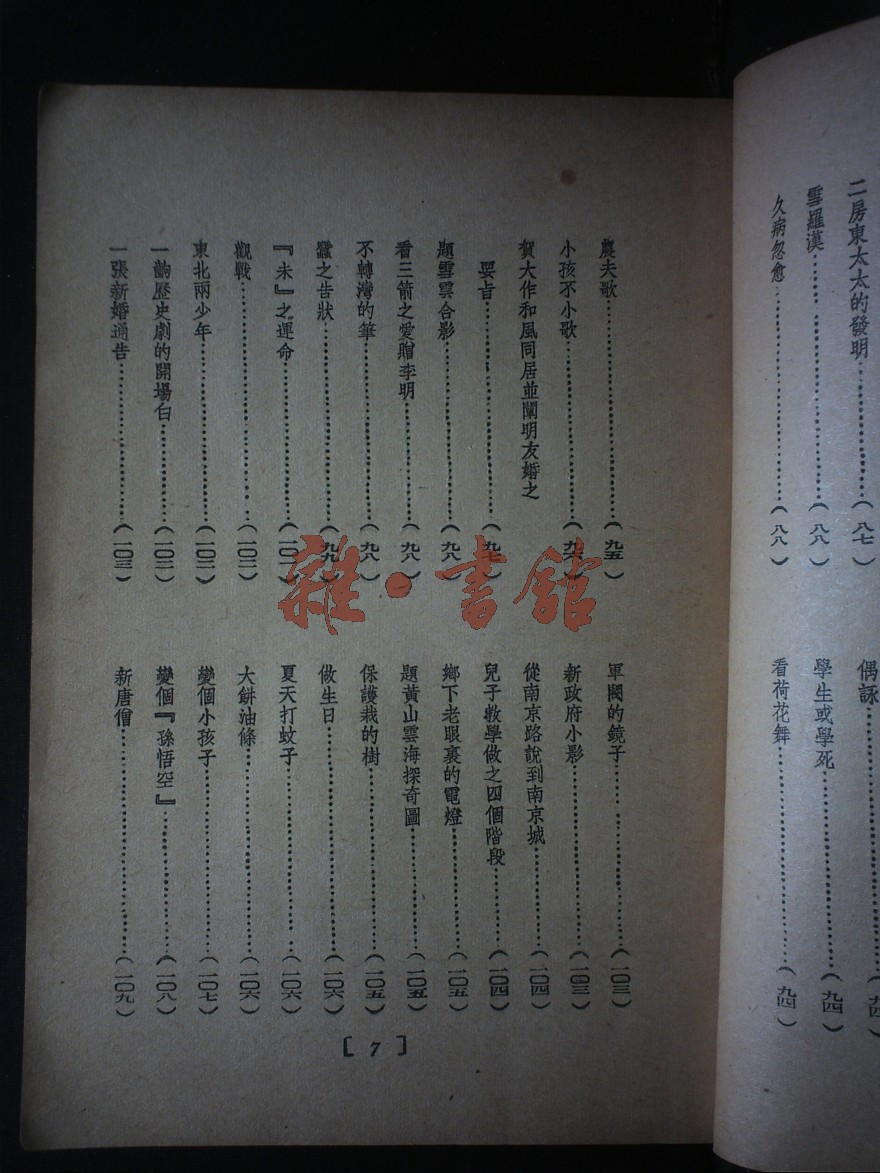 二房東太太的發明……(八七)
雪羅漢……(八八)
久病忽愈……(八八)
偶詠……(九四)
學生或學死……(九四)
看荷花舞……(九四)
農夫歌……(九五)
小孩不小歌……(九六)
賀大作和風同居並闡明友婚之
要旨……(九七)
題雪雲合影……(九八)
看三箭之愛贈李明……(九八)
不轉灣的筆……(九八)
蠶之告狀……(九九)
『未』之運命……(一〇一)
觀戰……(一〇二)
東北兩少年……(一〇二)
一齣歷史劇的開場白……(一〇二)
一張新婚通告……(一〇三)
軍閥的鏡子……(一〇三)
新政府小影……(一〇三)
從南京路說到南京城……(一〇四)
兒子教學做之四個階段……(一〇四)
鄉下老眼裏的電燈……(一〇五)
題黃山雲海探奇圖……(一〇五)
保護栽的樹……(一〇五)
做生日……(一〇六)
夏天打蚊子……(一〇六)
大餅油條……(一〇六)
變個小孩子……(一〇七)
變個『孫悟空』……(一〇八)
新唐僧……(一〇九)
[7]
雜·書館